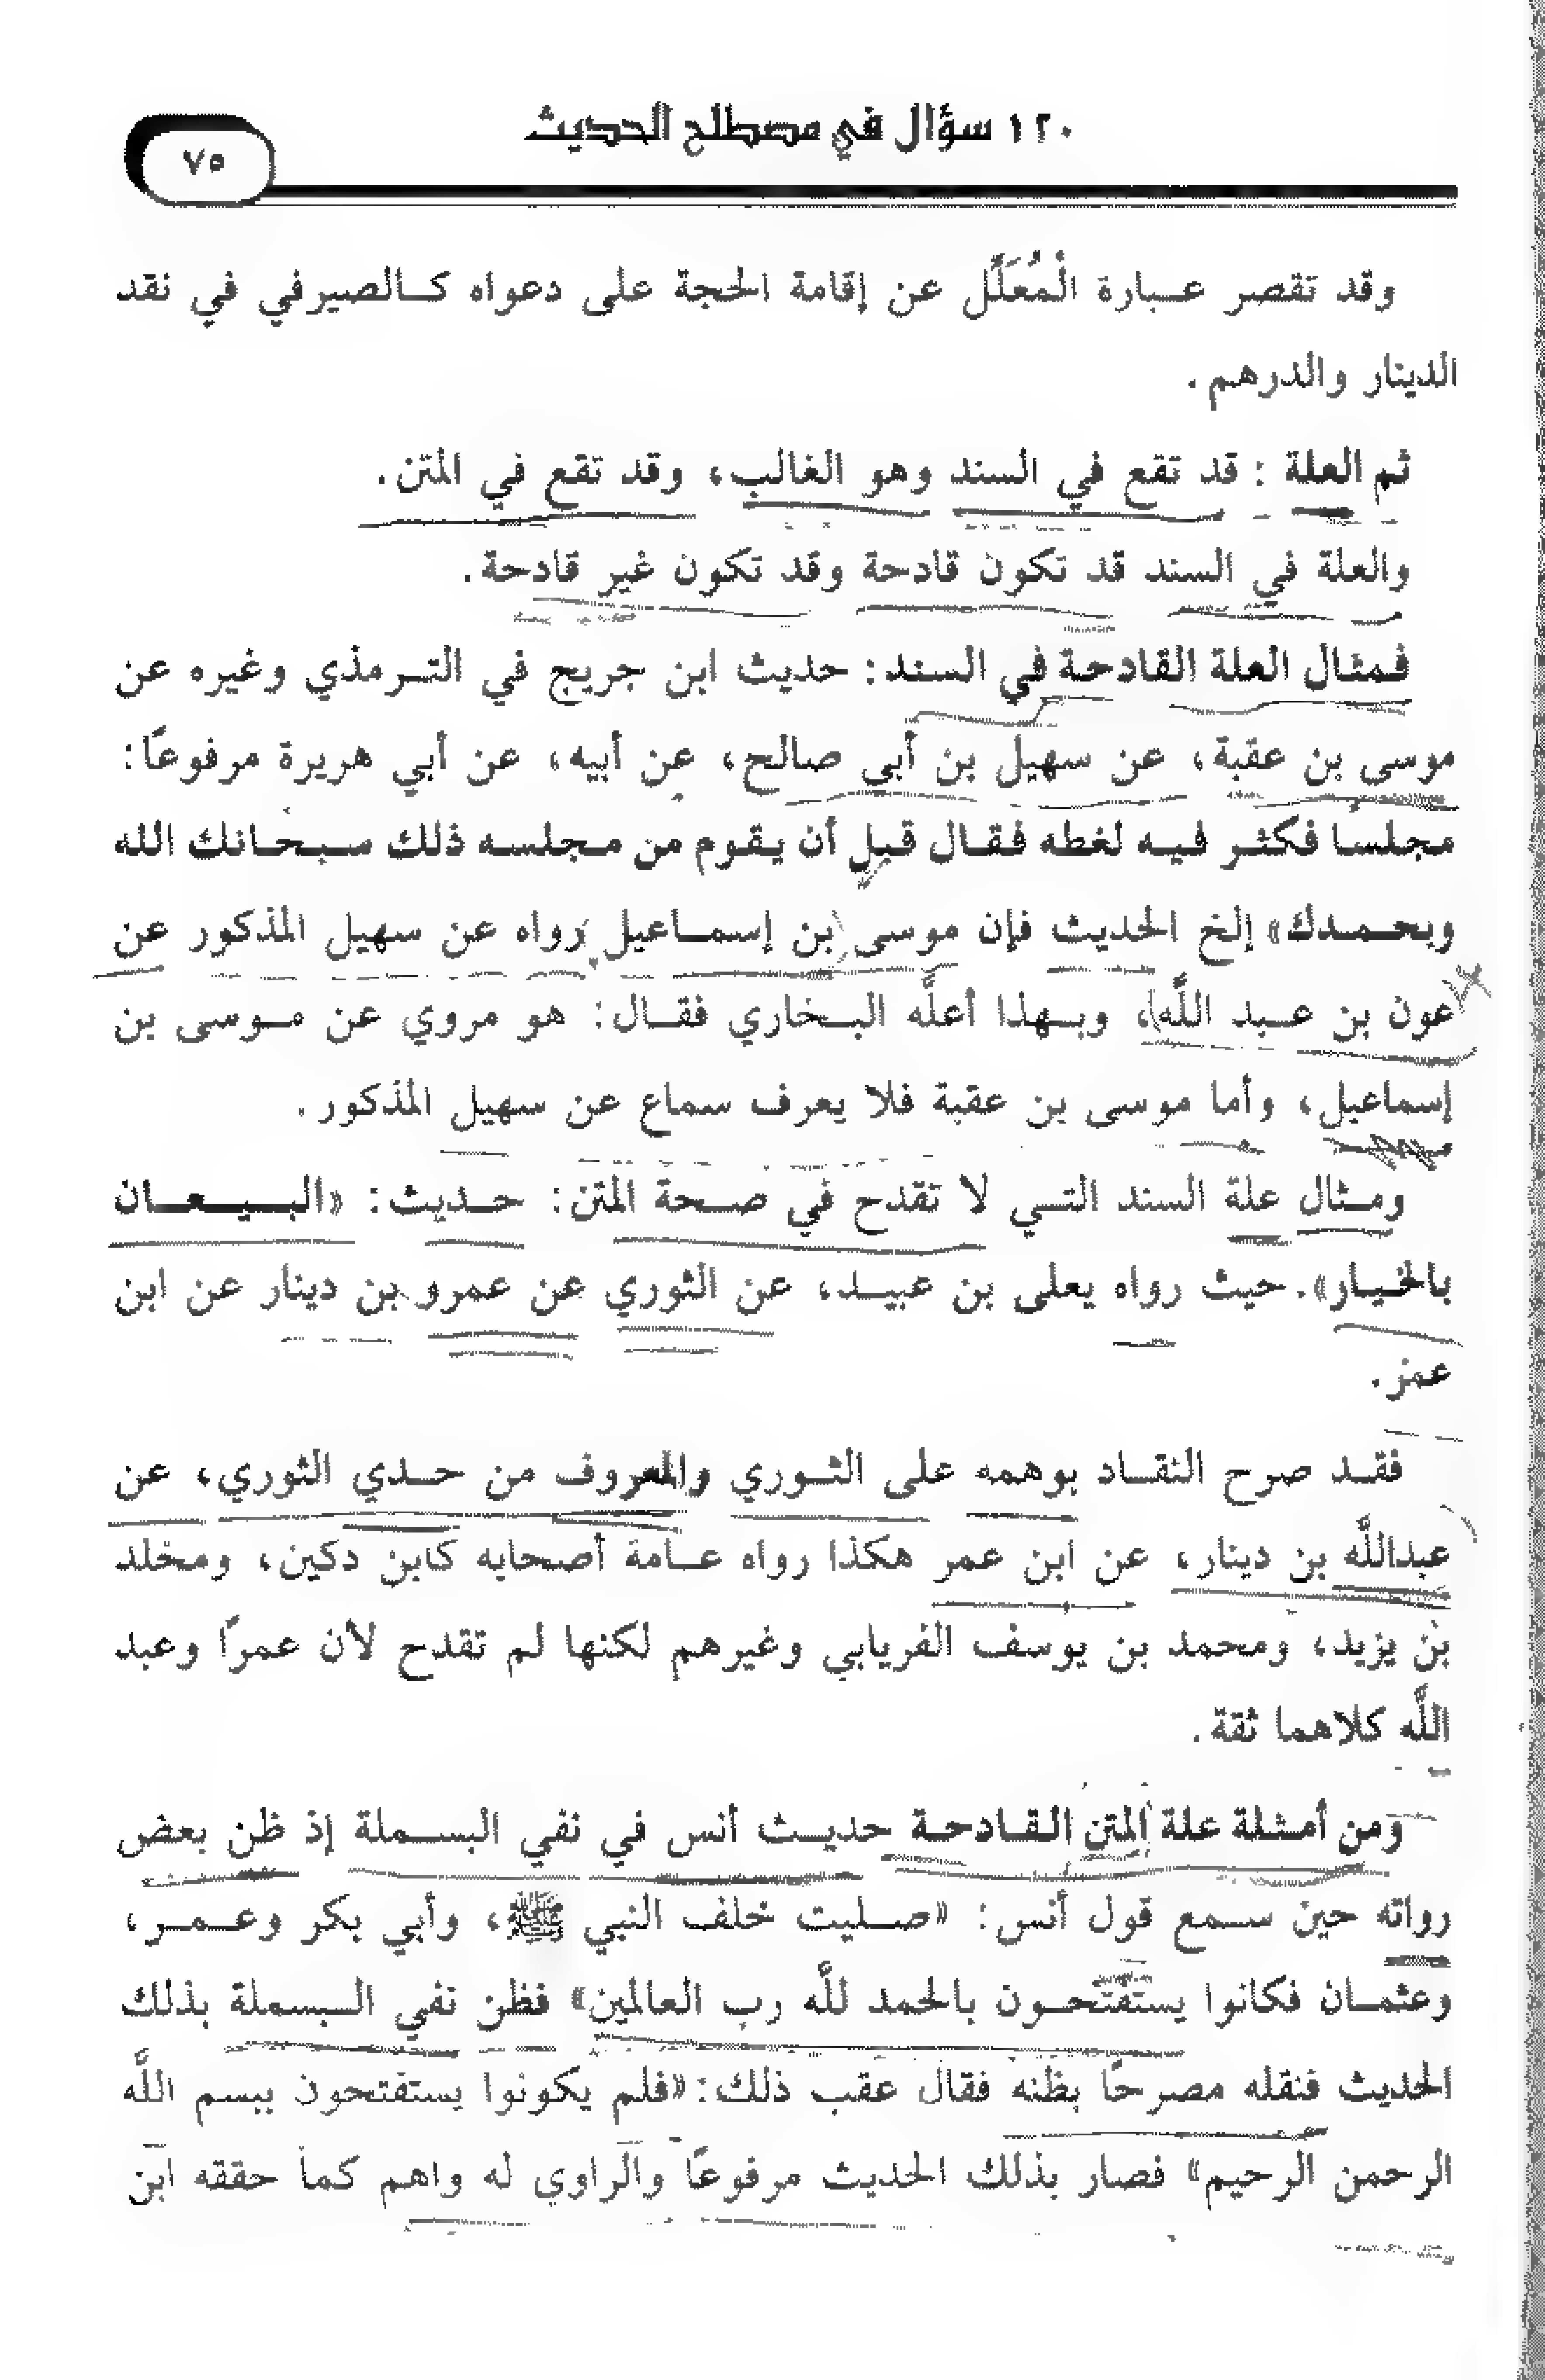 ١٢٠ سؤال في مصطلح الحديث
٧٥
وقد تقصر عبارة الْمُعَلِّل عن إقامة الحجة على دعواه كالصيرفي في نقد
الدينار والدرهم.
ثم العلة : قد تقع في السند وهو الغالب، وقد تقع في المتن.
والعلة في السند قد تكون قادحة وقد تكون غير قادحة.
فمثال العلة القادحة في السند: حديث ابن جريج في الترمذي وغيره عن
موسى بن عقبة، عن سهيل بن أبي صالح، عن أبيه، عن أبي هريرة مرفوعًا:
مجلسًا فكثر فيه لغطه فقال قبل أن يقوم من مجلسه ذلك سبحانك الله
وبحمدك» إلخ الحديث فإن موسى بن إسماعيل رواه عن سهيل المذكور عن
عون بن عبد اللَّه، وبهذا أعلَّه البخاري فقال: هو مروي عن موسى بن
إسماعيل، وأما موسى بن عقبة فلا يعرف سماع عن سهيل المذكور.
ومثال علة السند التي لا تقدح في صحة المتن: حديث: «البيعان
بالخيار». حيث رواه يعلى بن عبيد، عن الثوري عن عمرو بن دينار عن ابن
عمز.
فقد صرح النقاد بوهمه على الثوري والمعروف من حدي الثوري، عن
عبداللَّه بن دينار، عن ابن عمر هكذا رواه عامة أصحابه كابن دكين، ومخلد
بن يزيد، ومحمد بن يوسف الفريابي وغيرهم لكنها لم تقدح لأن عمرًا وعبد
اللَّه كلاهما ثقة.
ومن أمثلة علة المتن القادحة حديث أنس في نفي البسملة إذ ظن بعض
رواته حين سمع قول أنس: «صليت خلف النبي ﷺ، وأبي بكر وعمر،
وعثمان فكانوا يستفتحون بالحمد للَّه رب العالمين» فظن نفي البسملة بذلك
الحديث فنقله مصرحًا بظنه فقال عقب ذلك: «فلم يكونوا يستفتحون ببسم اللَّه
الرحمن الرحيم» فصار بذلك الحديث مرفوعًا والراوي له واهم كما حققه ابن